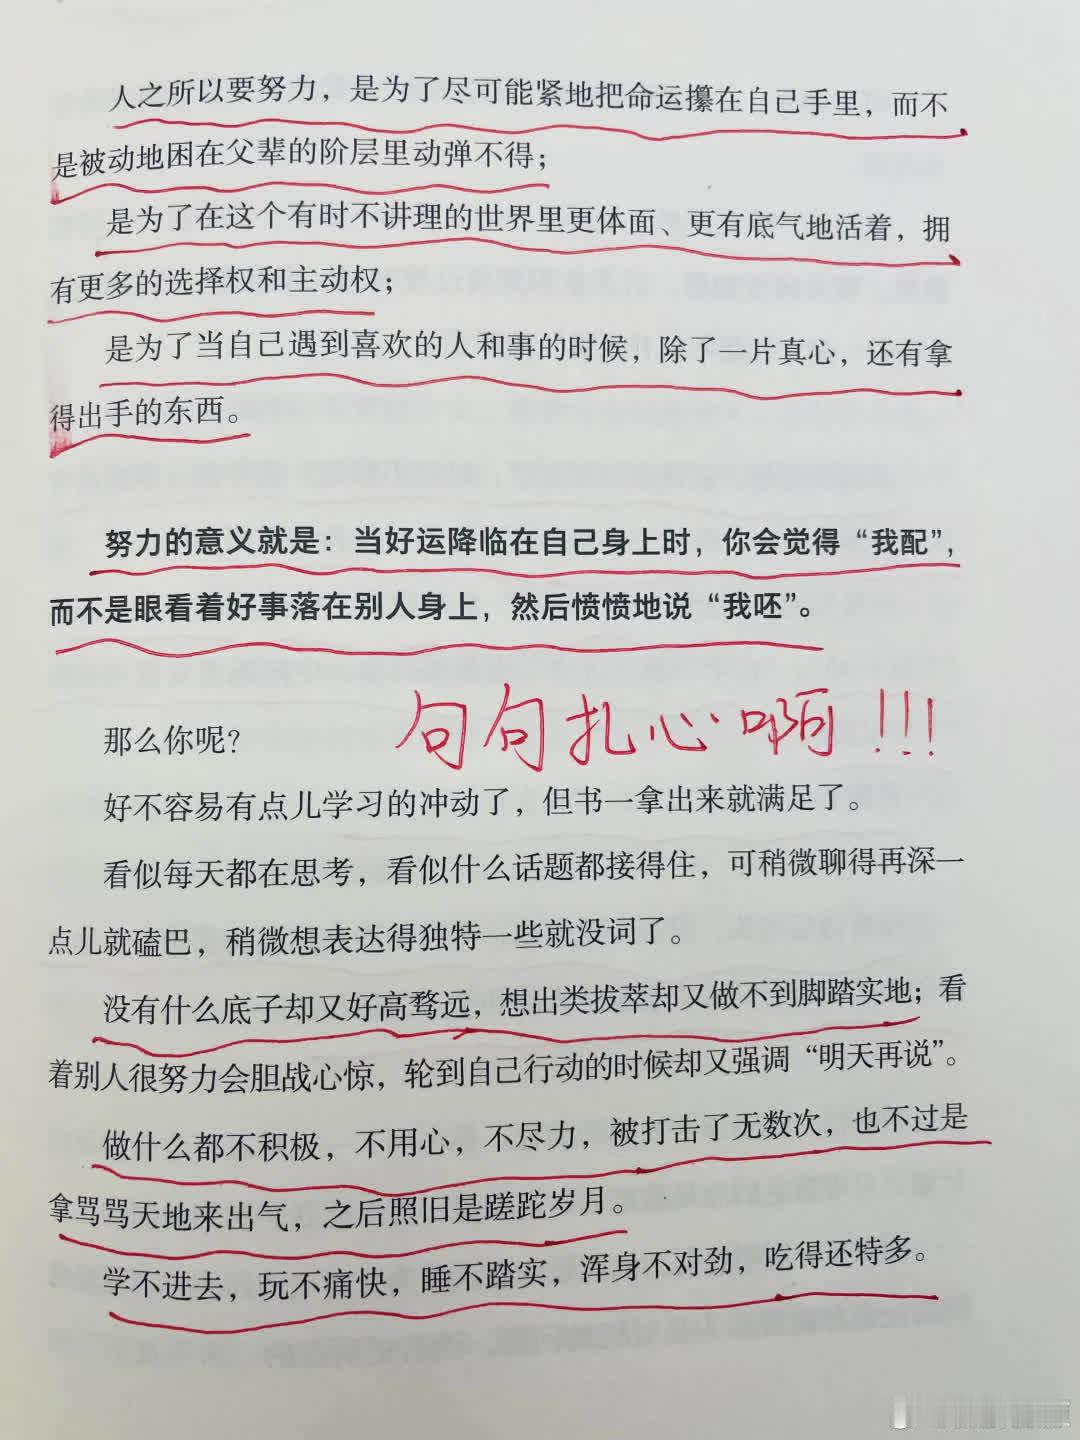 人之所以要努力，是为了尽可能紧地把命运攥在自己手里，而不
是被动地困在父辈的阶层里动弹不得；
是为了在这个有时不讲理的世界里更体面、更有底气地活着，拥
有更多的选择权和主动权；
是为了当自己遇到喜欢的人和事的时候，除了一片真心，还有拿
得出手的东西。
努力的意义就是：当好运降临在自己身上时，你会觉得“我配”，
而不是眼看着好事落在别人身上，然后愤愤地说“我呸”。
句句扎心啊!!!
那么你呢？
好不容易有点儿学习的冲动了，但书一拿出来就满足了。
看似每天都在思考，看似什么话题都接得住，可稍微聊得再深一
点儿就磕巴，稍微想表达得独特一些就没词了。
没有什么底子却又好高骛远，想出类拔萃却又做不到脚踏实地；看
着别人很努力会胆战心惊，轮到自己行动的时候却又强调“明天再说”。
做什么都不积极，不用心，不尽力，被打击了无数次，也不过是
拿骂骂天地来出气，之后照旧是蹉跎岁月。
学不进去，玩不痛快，睡不踏实，浑身不对劲，吃得还特多。